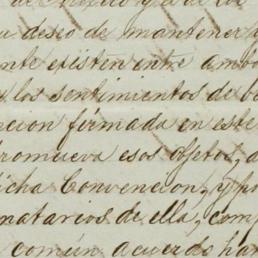 de México y a de los
u deseo de mantener y
nte existen entre ambo
los sentimientos de be
ncion firmada en este
promueva esos objetos, d
icha Convencion, y po
natarios de ella, com
comun acuerdo han